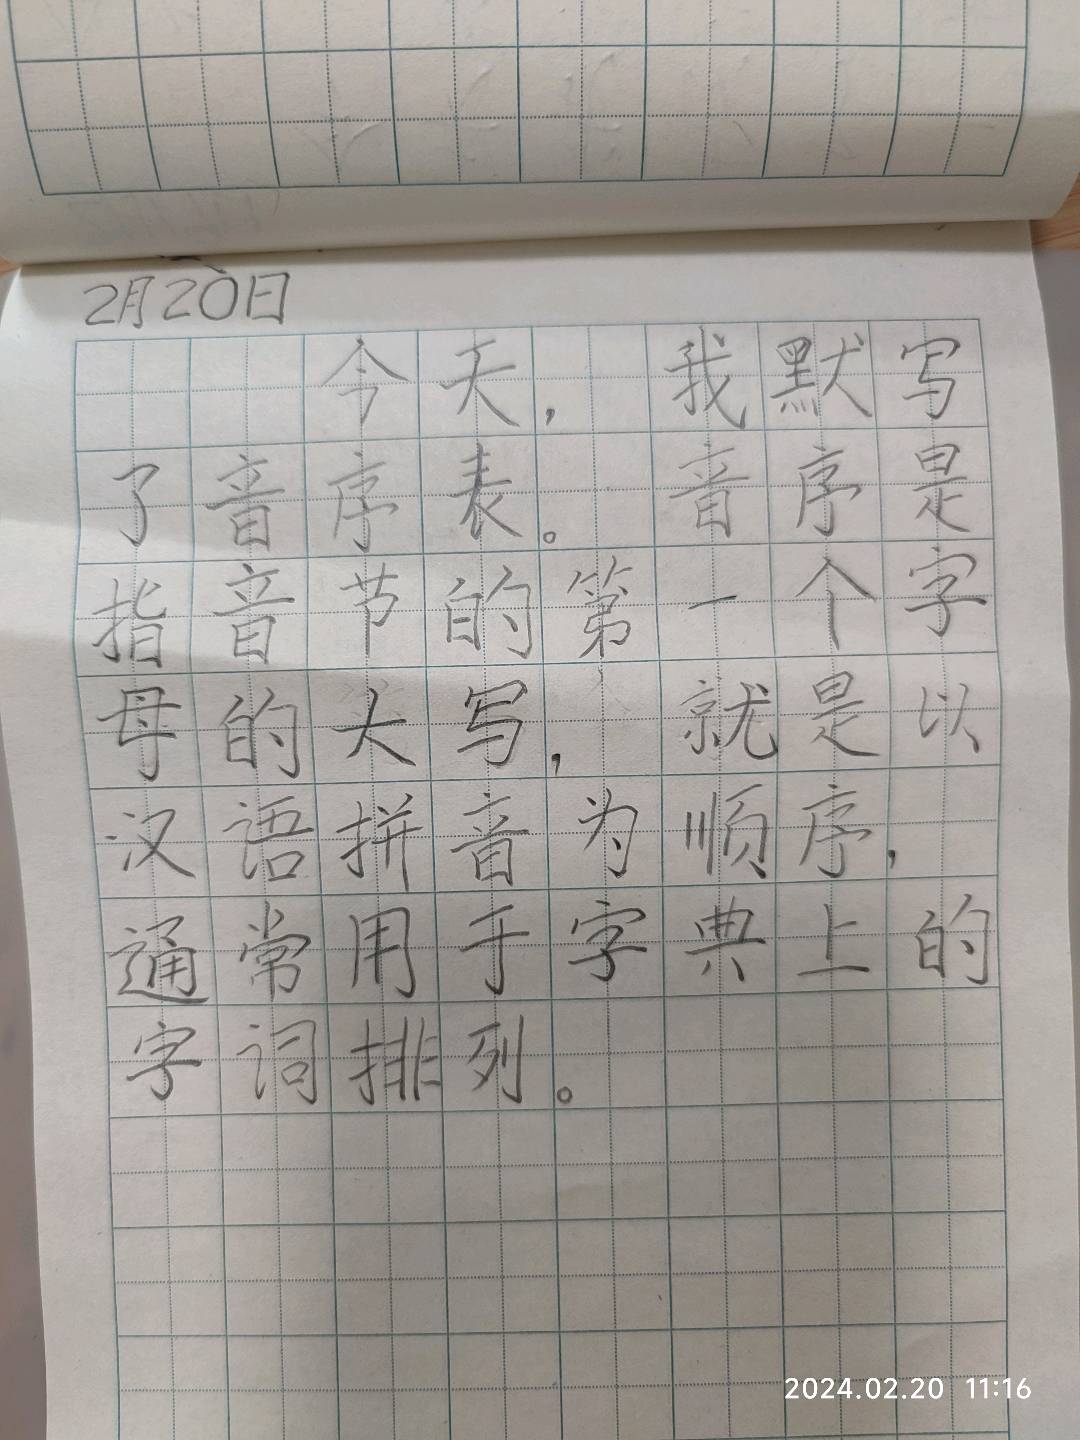 2月20日
今天，我默写
了音序表。音序是
指音节的第一个字
母的大写，就是以
汉语拼音为顺序，
通常用于字典上的
字词排列。
2024.02.20 11:16